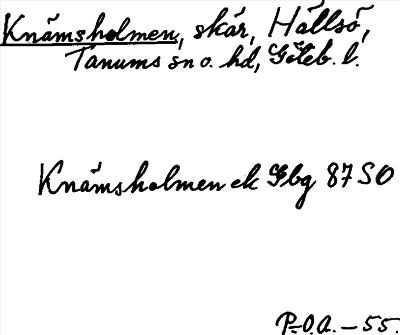 Knämsholmen, skär, Hällsö,
Tanums sn o. hd, Göteb. l.
Knämsholmen ek Gbg 87 SO
P.O.A. – 55.